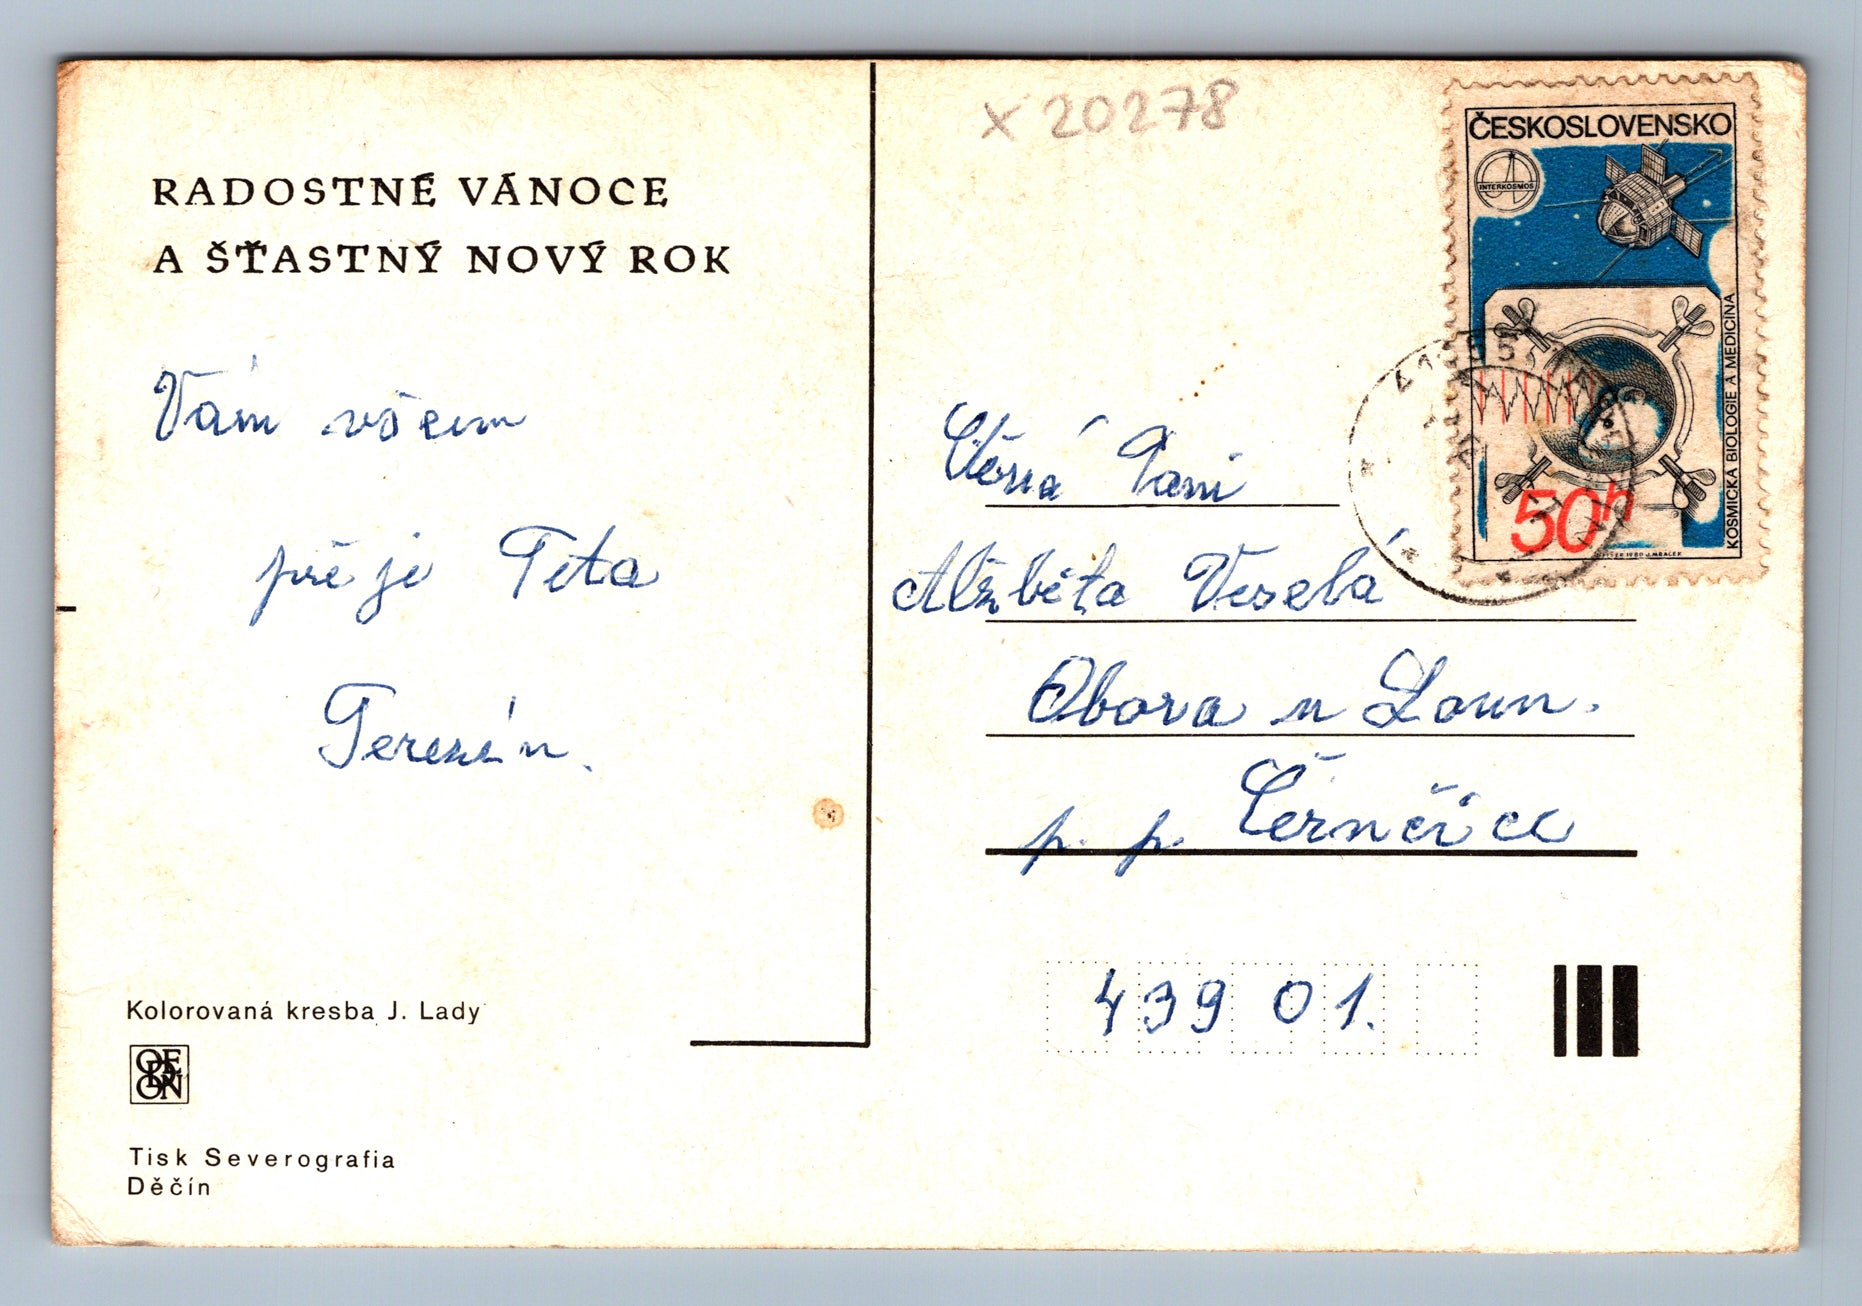 RADOSTNÉ VÁNOCE
A ŠŤASTNÝ NOVÝ ROK
Vám všem
přeje Teta
Terezín.
Kolorovaná kresba J. Lady
ODEON
Tisk Severografia
Děčín
x 20278
ČESKOSLOVENSKO
INTERKOSMOS
KOSMICKÁ BIOLOGIE A MEDICÍNA
50h
1980 J. MRÁČEK
411 55
Paní
Alžběta Veselá
Obora u Loun.
p. p. Černčice
439 01.